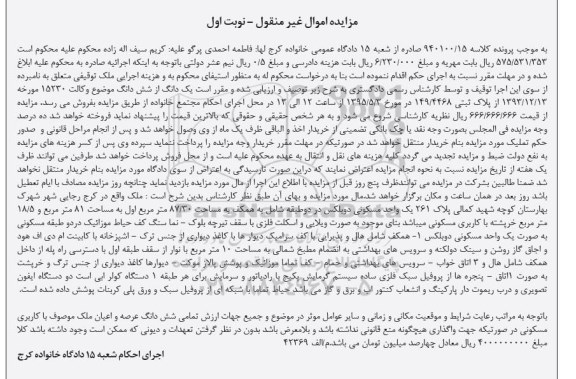 مزایده اموال غیر منقول – نوبت اول
به موجب پرونده کلاسه ۹۴۰۱۰۰/۱۵ صادره از شعبه ۱۵ دادگاه عمومی خانواده کرج لها: فاطمه احمدی پرگو علیه: کریم سیف اله زاده محکوم علیه محکوم است
۵۷۵/۵۳۱/۳۵۳ ریال بابت مهریه و مبلغ ۶/۲۳۰/۰۰۰ ریال بابت هزینه دادرسی و مبلغ ۰/۵ ریال نیم عشر دولتی باتوجه به اینکه اجرائیه صادره به محکوم علیه ابلاغ
شده و در مهلت مقرر نسبت به اجرای حکم اقدام ننموده است بنا به درخواست محکوم له به منظور استیفای محکوم به و هزینه اجرایی ملک توقیفی متعلق به نامبرده
از سوی این اجرا توقیف و توسط کارشناس رسمی دادگستری به شرح زیر توصیف و ارزیابی شده و مقرر است یک دانگ از شش دانگ موضوع وکالت ۱۵۲۳۰ مورخه
۱۳۹۳/۱۲/۱۳ از پلاک ثبتی ۱۴۹/۴۴۶۸ در مورخ ۱۳۹۵/۵/۳ از ساعت ۱۲ الی ۱۳ در محل اجرای احکام مجتمع خانواده از طریق مزایده بفروش می رسد، مزایده
از قیمت ۶۶۶/۶۶۶/۶۶۶ ریال نظریه کارشناس شروع می شود و به هر شخص حقیقی و حقوقی که بالاترین قیمت را پیشنهاد نماید فروخته خواهد شد ده درصد
وجه مزایده فی المجلس بصورت وجه نقد یا چک بانکی تضمینی از خریدار اخذ و الباقی ظرف یک ماه از وی وصول خواهد شد و پس از انجام مراحل قانونی و صدور
حکم تملیک مورد مزایده بنام خریدار منتقل خواهد شد در صورتیکه در مهلت مقرر خریدار وجه مزایده را پرداخت ننماید سپرده وی پس از کسر هزینه های مزایده
به نفع دولت ضبط و مزایده تجدید می گردد. کلیه هزینه های نقل و انتقال به عهده محکوم علیه است و از محل فروش پرداخت خواهد شد طرفین می توانند ظرف
یک هفته از تاریخ مزایده نسبت به نحوه انجام مزایده اعتراض نمایند که دراین صورت تارسیدگی به اعتراض از سوی دادگاه مورد مزایده بنام خریدار منتقل نخواهد
شد ضمنا طالبین بشرکت در مزایده می توانندظرف پنج روز قبل از مزایده با اطلاع این اجرا از مال مورد مزایده بازدید نماید چنانچه روز مزایده مصادف با ایام تعطیل
باشد روز بعد در همان ساعت و مکان برگزار خواهد شد.مال مورد مزایده و بهای آن طبق نظر کارشناس بدین شرح است : ملک واقع در کرج رجایی شهر شهرک
بهارستان کوچه شهید کمالی پلاک ۲۶۱ یک واحد مسکونی دوبلکس در دوطبقه شامل به همکف به مساحت ۸۷/۳۰ متر مربع اول به مساحت ۸۱ متر مربع و ۱۸/۵
متر مربع خرپشته با کاربری مسکونی میباشد بنای موجود به صورت ویلایی و اسکلت فلزی با سقف تیرچه بلوک – نما سنگ کف حیاط موزائیک دردو طبقه مسکونی
به صورت یک واحد مسکونی دوبلکس ۱- همکف شامل هال و پذیرایی با کف سرامیک دیوار ها با کاغذ دیواری از جنس ترک – اشپزخانه با کابینت ام دی اف هود
و اجاق گاز روشن و سینک دولگنه و سرویس های بهداشتی به انضمام مطبخ شمالی به مساحت ۱۰ متر مربع با نوار از سقف طبقه اول با دسترسی راه پله از داخل
همکف شامل هال و ۳ اتاق خواب – سرویس های بهداشتی و حمام – کف تماما موزائیک و پوشش پالاز موکت – دیوارها کاغذ دیواری از جنس ترک و خرپشت
به صورت اتاق – پنجره ها از پروفیل سبک فلزی ساده سیستم گرمایش پکیج با رادیاتور و سرمایش برای هر طبقه ۱ دستگاه کولر ابی است دو دستگاه ایفون
تصویری و درب ریموت دار پارکینگ و انشعاب کنتور اب و برق و گاز می باشد. حیاط تماما با شبکه ای از پروفیل سبک و ورق پلی کربنات پوشش داده شده است.
باتوجه به مراتب رعایت شرایط و موقعیت مکانی و زمانی و سایر عوامل موثر در موضوع و جمیع جهات ارزش تمامی شش دانگ عرصه و اعیان ملک موصوف با کاربری
مسکونی در صورتیکه جهت واگذاری هیچگونه منع قانونی نداشته باشد و بلامعرض باشد بدون در نظر گرفتن تعهدات و دیونی که ممکن است وجود داشته باشد کلا
مبلغ ۴۰۰۰۰۰۰۰۰۰ ریال معادل چهارصد میلیون تومان می باشد.م/الف ۴۲۳۶۹
اجرای احکام شعبه ۱۵ دادگاه خانواده کرج